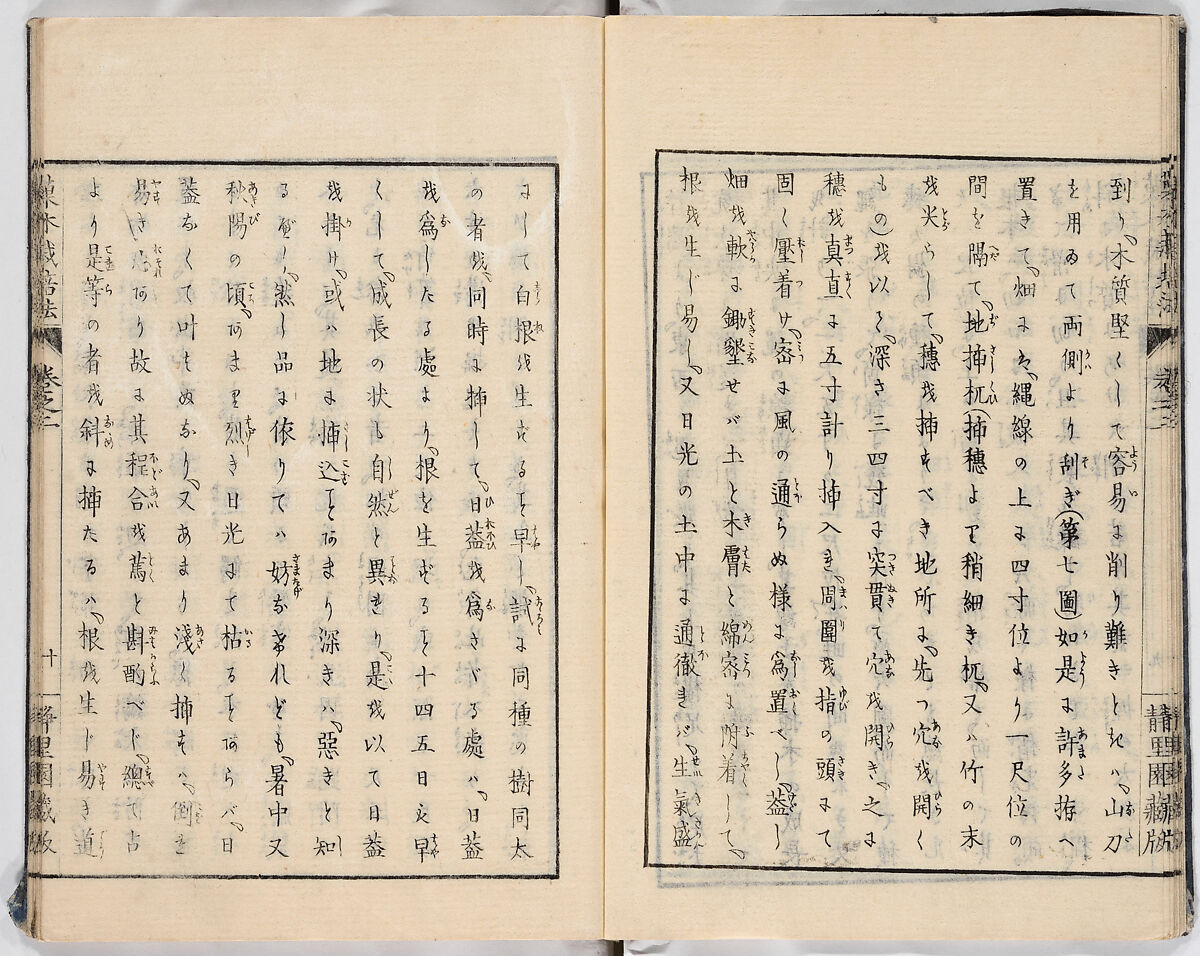 到り、木質堅くして容易に削り難きときハ、山刀
を用ゐて両側より刮ぎ(第七圖)如是に許多拵へ
置きて、畑に々、縄線の上に四寸位より一尺位の
間を隔て、地挿杭(挿穂より稍細き杭、又ハ竹の末
を尖らして、穂を挿すべき地所に、先つ穴を開く
もの)を以て、深さ三四寸に突貫て穴を開き、之に
穂を真直に五寸計り挿入き、周圍を指の頭にて
固く壓着け、密に風の通らぬ様に為置べし、蓋し
畑を軟に鋤墾せば土と木膚と綿密に附着して、
根を生じ易し、又日光の土中に通徹きバ、生氣盛
靜里園蔵版
にして白根を生ずること早し、試に同種の樹同太
の者を、同時に挿して、日蓋を為さゞる處ハ、日蓋
を為したる處より、根を生ずること十四五日も早
くして、成長の状も自然と異なり、是を以て日蓋
を掛け、或ハ地に挿込ことあまり深きハ、惡きと知
るべし、然し品に依りてハ妨なけれども、暑中又
秋陽の頃、あまり烈き日光にて枯ることあらバ、日
蓋なくて叶はぬなり、又あまり淺く挿すハ、倒を
易き恐あり故に其程合を篤と斟酌べし、總て古
より是等の者を斜に挿たるハ、根を生じ易き道
栽培法
巻之二
十
靜里園蔵版